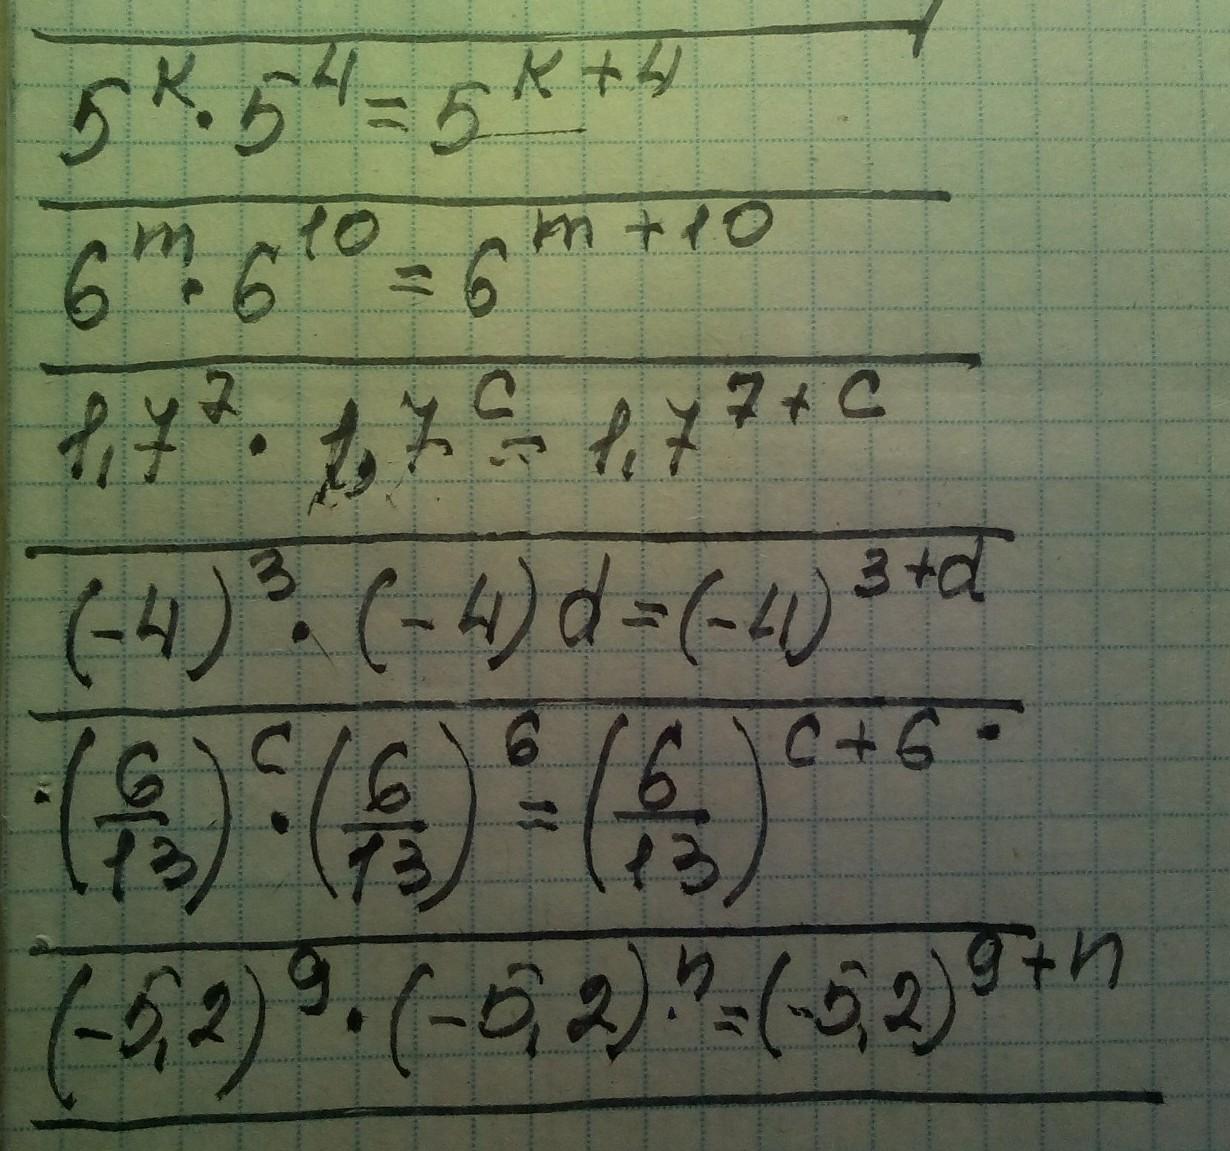 5^k · 5^4 = 5^(k+4)
6^m · 6^10 = 6^(m+10)
1,7^7 · 1,7^c = 1,7^(7+c)
(-4)^3 · (-4)d = (-4)^(3+d)
(6/13)^c · (6/13)^6 = (6/13)^(c+6)
(-5,2)^9 · (-5,2)^n = (-5,2)^(9+n)